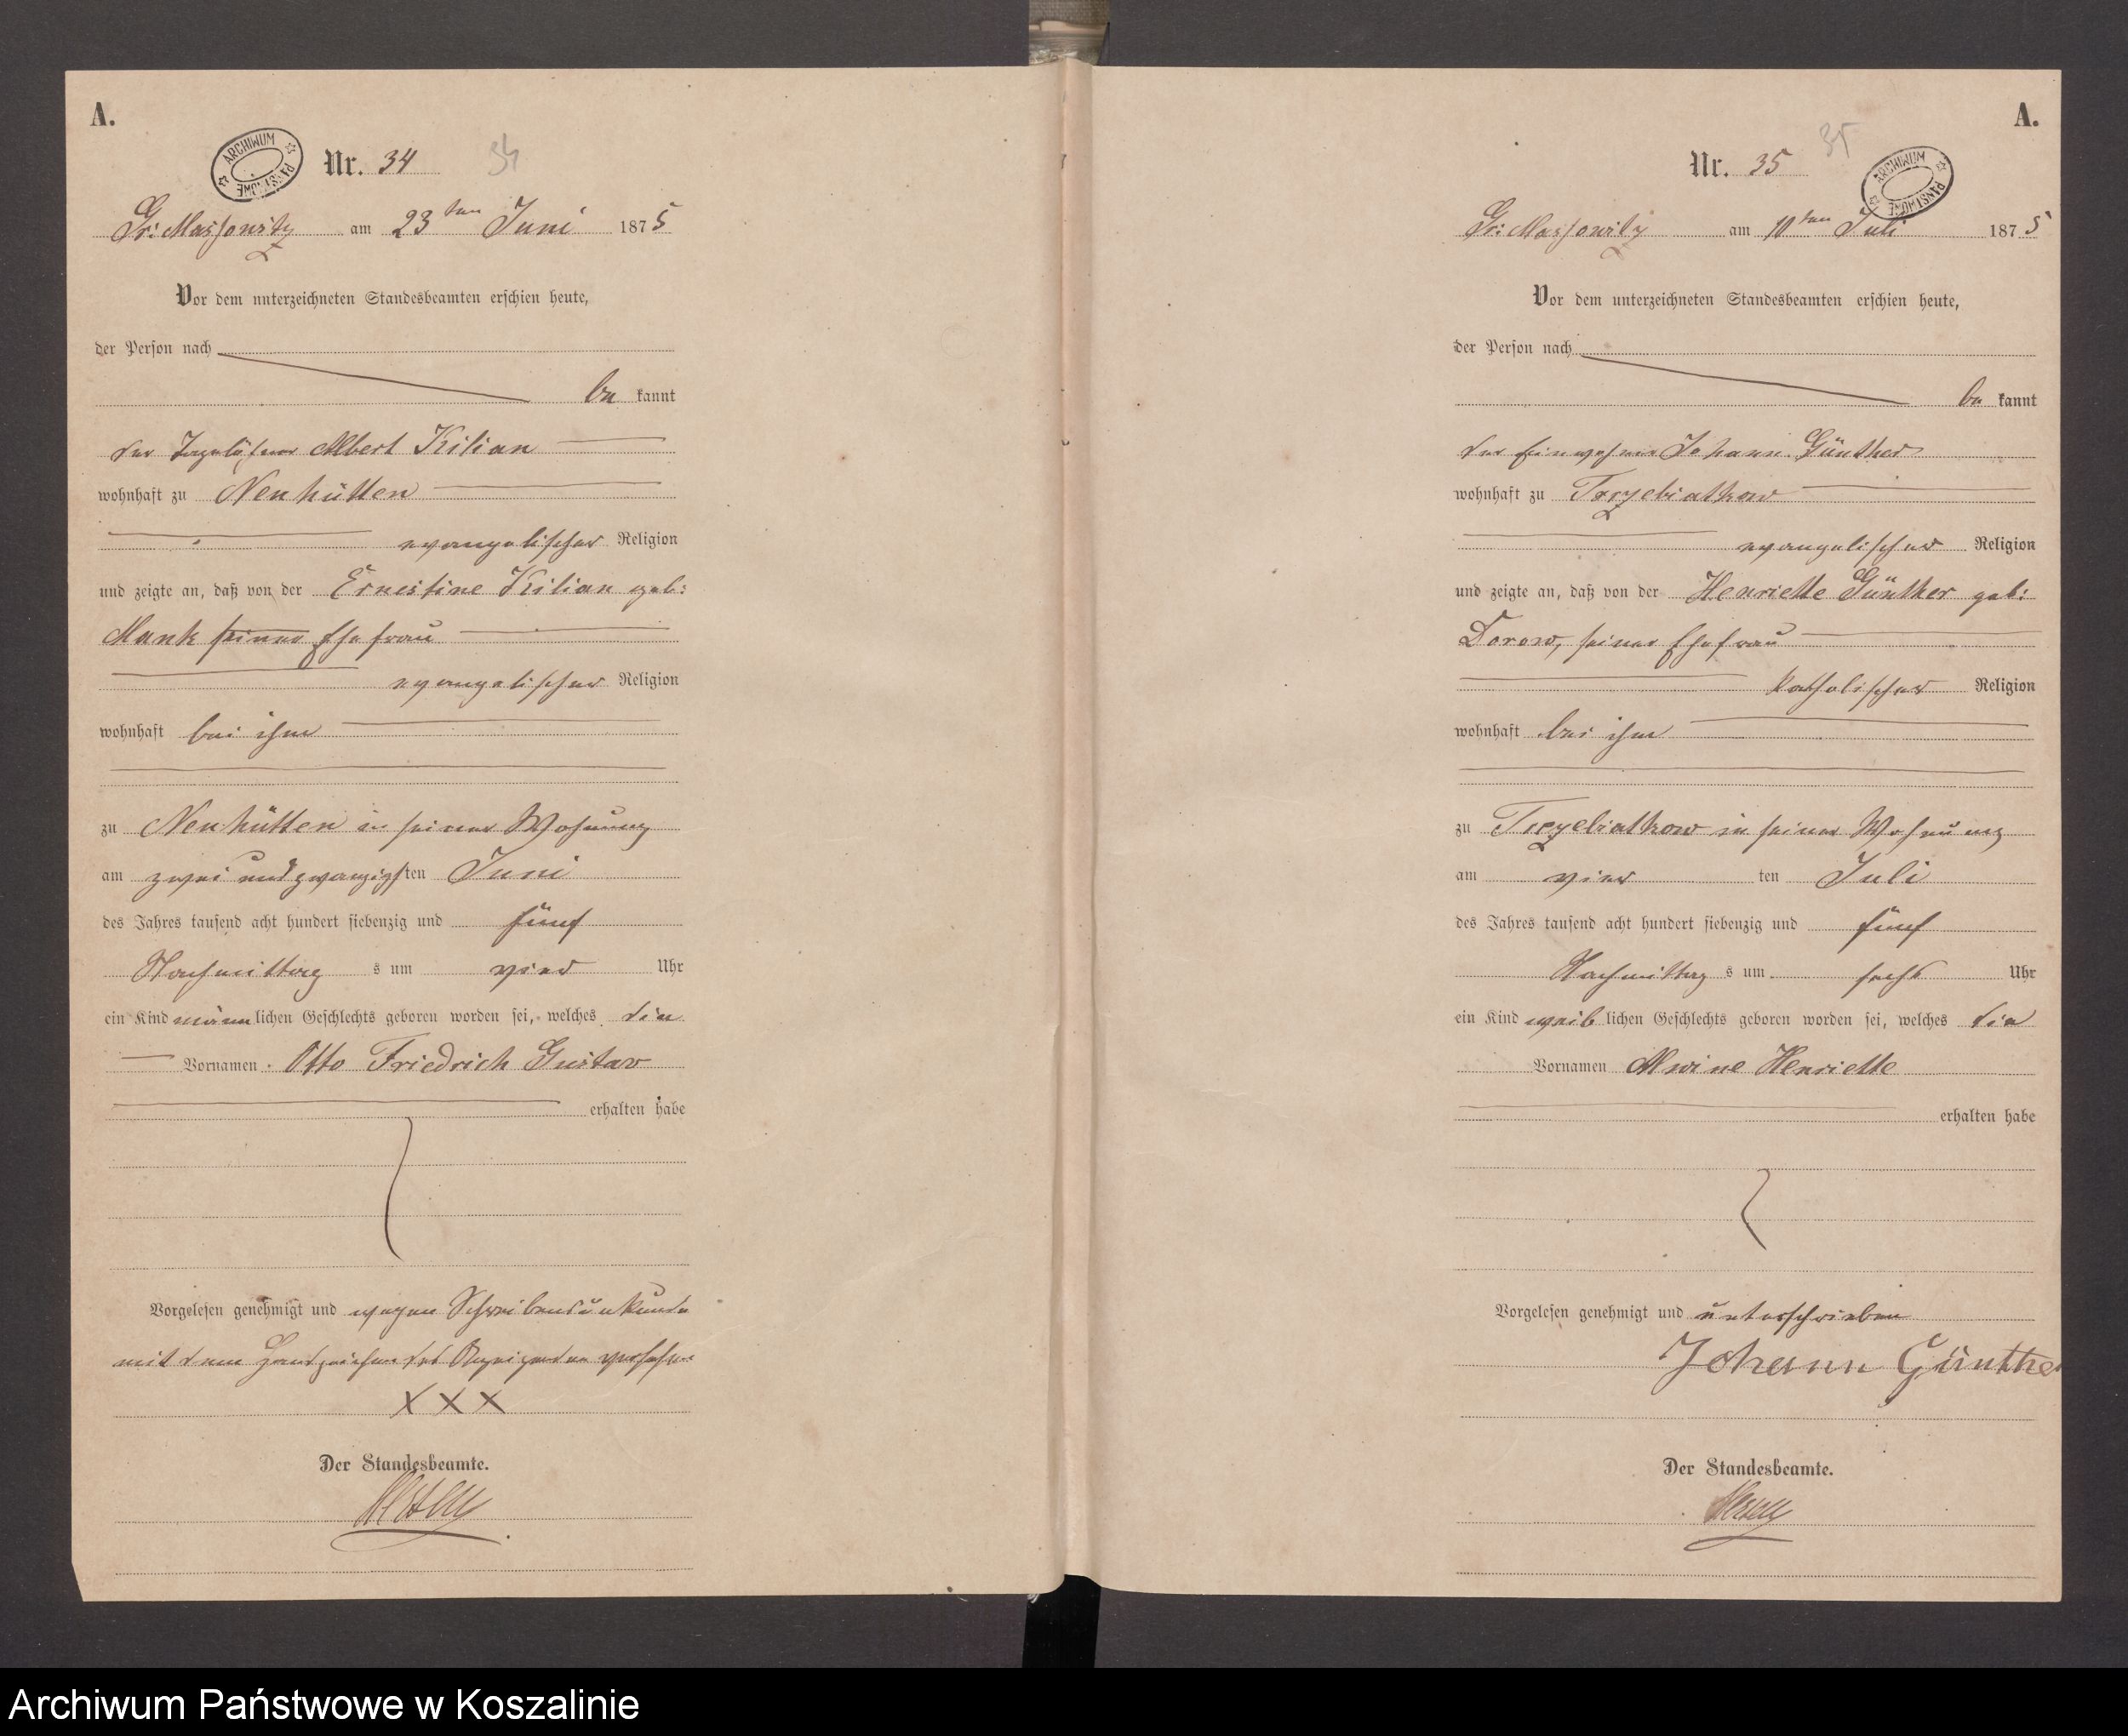 A.
ARCHIWUM PAŃSTWOWE
Nr. 34
34
Gr: Massowitz am 23ten Juni 1875
Vor dem unterzeichneten Standesbeamten erschien heute,
der Person nach
be kannt
der Tagelöhner Albert Kilian
wohnhaft zu Neuhütten
evangelischer Religion
und zeigte an, daß von der Ernestine Kilian geb:
Mank seiner Ehefrau
evangelischer Religion
wohnhaft bei ihm
zu Neuhütten in seiner Wohnung
am zwei und zwanzigsten Juni
des Jahres tausend acht hundert siebenzig und fünf
Nachmittag s um vier Uhr
ein Kind männlichen Geschlechts geboren worden sei, welches den
Vornamen Otto Friedrich Gustav
erhalten habe
Vorgelesen genehmigt und wegen Schreibensunkunde
mit dem Handzeichen des Anzeigenden versehen
XXX
Der Standesbeamte.
A.
ARCHIWUM PAŃSTWOWE
Nr. 35
35
Gr: Massowitz am 10ten Juli 1875
Vor dem unterzeichneten Standesbeamten erschien heute,
der Person nach
be kannt
der Einwohner Johann Günther
wohnhaft zu Trzebiatkow
evangelischer Religion
und zeigte an, daß von der Henriette Günther geb:
Dorow, seiner Ehefrau
katholischer Religion
wohnhaft bei ihm
zu Trzebiatkow in seiner Wohnung
am vier ten Juli
des Jahres tausend acht hundert siebenzig und fünf
Nachmittag s um sechs Uhr
ein Kind weib lichen Geschlechts geboren worden sei, welches die
Vornamen Alwine Henriette
erhalten habe
Vorgelesen genehmigt und unterschrieben
Johann Günther
Der Standesbeamte.
Archiwum Państwowe w Koszalinie